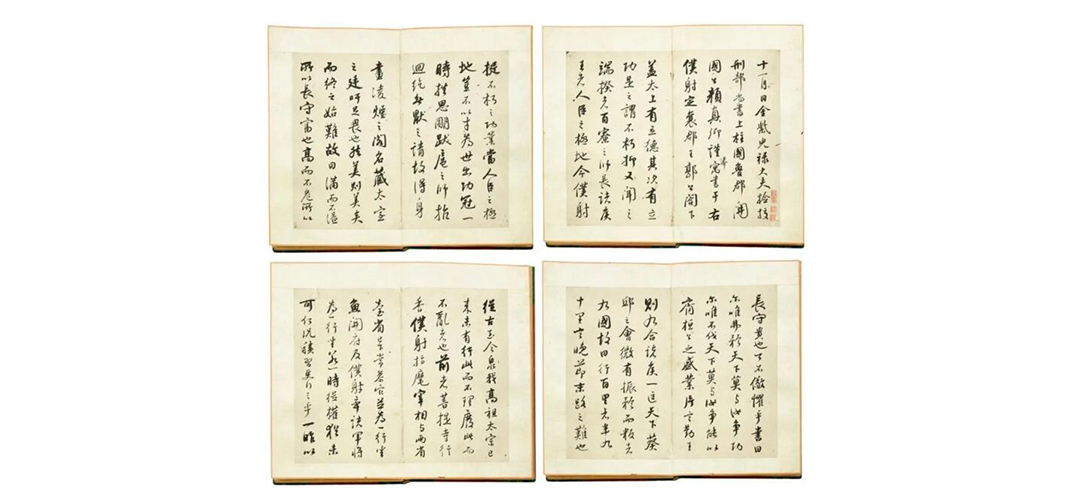 十一月日金紫光祿大夫檢校
刑部尚書上柱國魯郡開
國公顏真卿謹奉寓書于右
僕射定襄郡王郭公閣下
蓋太上有立德其次有立
功是之謂不朽抑又聞之
端揆者百寮之師長諸侯
王者人臣之極地今僕射
挺不朽之功業當人臣之極
地豈不以才為世出功冠一
時挫思明跋扈之師抗
迴紇無厭之請故得身
畫凌煙之閣名藏太室
之廷吁足畏也然美則美矣
而終之始難故曰滿而不溢
所以長守富也高而不危所以
長守貴也可不儆懼乎書曰
爾唯弗矜天下莫與汝爭功
爾唯不伐天下莫與汝爭能以
齊桓公之盛業片言勤王
則九合諸侯一匡天下葵
邱之會微有振矜而叛者
九國故曰行百里者半九
十里言晚節末路之難也
從古至今泉我高祖太宗已
來未有行此而不理廢此而
不亂者也前者菩提寺行
香僕射指麾宰相與兩省
臺省已下常參官並為一行坐
魚開府及僕射率諸軍將
為一行坐若一時從權猶未
可何況積習更行之乎一昨以